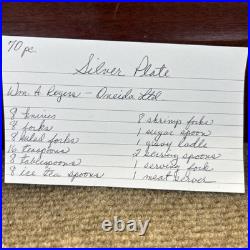 70 pc.
Silver Plate
Wm. A Rogers - Oneida Ltd
8 knives
8 forks
8 salad forks
16 teaspoons
8 tablespoons
8 ice tea spoons
8 shrimp forks
1 sugar spoon
1 gravy ladle
2 serving spoons
1 serving fork
1 meat server